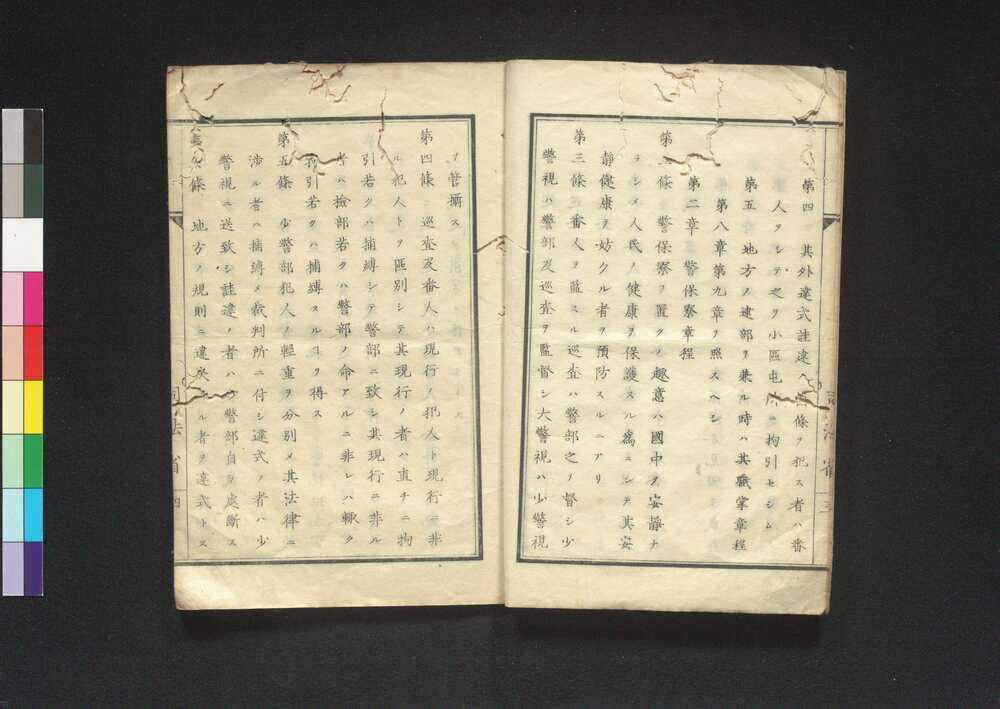 第四 其外違式詿違ヘ條ヲ犯ス者ハ番
人ヲシテ之ヲ小區屯ニ拘引セシム
第五 地方ノ逮部ヲ兼ル時ハ其職掌章程
第八章第九章ヲ照スヘシ
第二章 警保寮章程
第一條 警保寮ヲ置クノ趣意ハ國中ヲ安静ナ
ラシメ人民ノ健康ヲ保護スル爲ニシテ其安
静健康ヲ妨クル者ヲ預防スルニアリ
第三條 番人ヲ監スル巡査ハ警部之ヲ督シ少
警視ハ警部及巡査ヲ監督シ大警視ハ少警視
ヲ管攝ス
第四條 巡査及番人ハ現行ノ犯人ト現行ニ非
ル犯人トヲ區別シテ其現行ノ者ハ直チニ拘
引若クハ捕縛シテ警部ニ致シ其現行ニ非ル
者ハ檢部若クハ警部ノ命アルニ非レハ輙ク
拘引若クハ捕縛スルヿヲ得ス
第五條 少警部犯人ノ輕重ヲ分別メ其法律ニ
渉ル者ハ捕縛メ裁判所ニ付シ違式ノ者ハ少
警視ニ送致シ詿違ノ者ハ警部自ラ處斷ス
第六條 地方ノ規則ニ違矣スル者ヲ違式トス
司法省 三
司法省 四